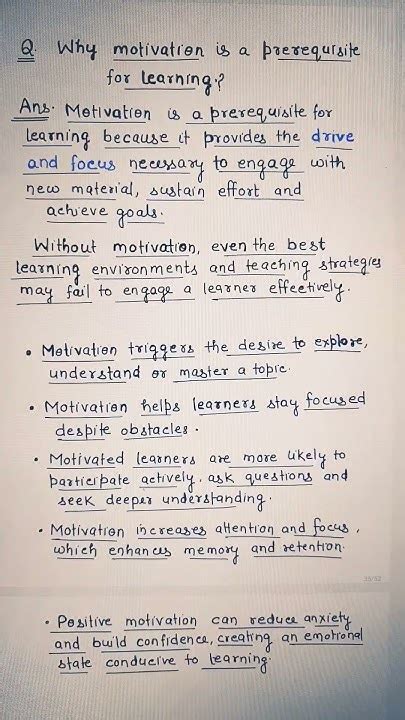 Q. Why motivation is a prerequisite
for learning.?
Ans. Motivation is a prerequisite for
learning because it provides the drive
and focus necessary to engage with
new material, sustain effort and
achieve goals.
Without motivation, even the best
learning environments and teaching strategies
may fail to engage a learner effectively.
• Motivation triggers the desire to explore,
understand or master a topic.
• Motivation helps learners stay focused
despite obstacles.
• Motivated learners are more likely to
participate actively, ask questions and
seek deeper understanding.
• Motivation increases attention and focus,
which enhances memory and retention.
• Positive motivation can reduce anxiety
and build confidence, creating an emotional
state conducive to learning.